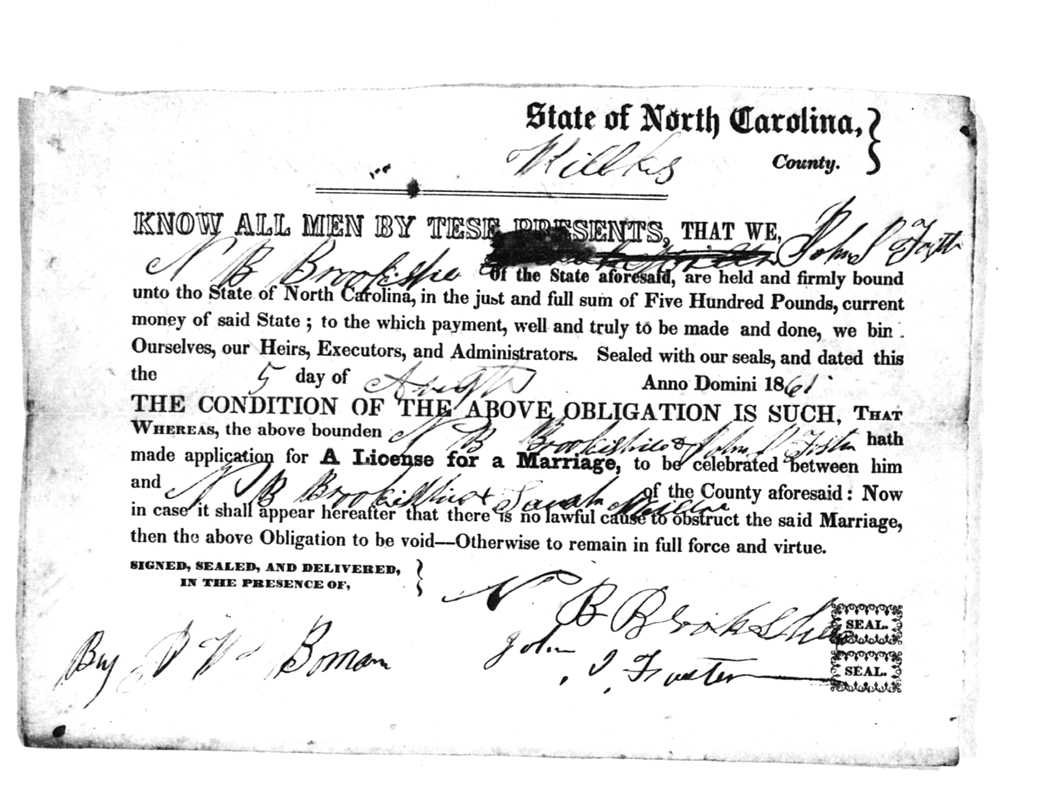 State of North Carolina,
Willkes County.
KNOW ALL MEN BY TESE PRESENTS, THAT WE, John
N B Brookshire of the State aforesaid, are held and firmly bound
unto tho State of North Carolina, in the just and full sum of Five Hundred Pounds, current
money of said State; to the which payment, well and truly to be made and done, we bin
Ourselves, our Heirs, Executors, and Administrators. Sealed with our seals, and dated this
the 5 day of Anno Domini 1861
THE CONDITION OF THE ABOVE OBLIGATION IS SUCH, THAT
WHEREAS, the above bounden N B Brookshire & John hath
made application for A License for a Marriage, to be celebrated between him
and N B Brookshire & Sarah of the County aforesaid: Now
in case it shall appear hereafter that there is no lawful cause to obstruct the said Marriage,
then the above Obligation to be void—Otherwise to remain in full force and virtue.
SIGNED, SEALED, AND DELIVERED,
IN THE PRESENCE OF,
N B Brookshire SEAL.
By Boman
John Foster SEAL.